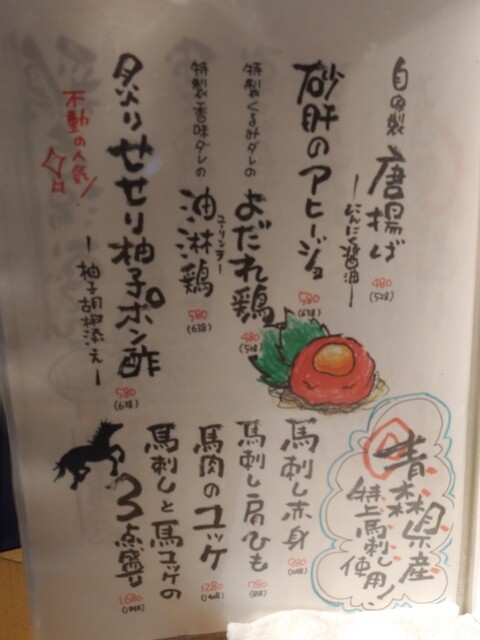 自家製
唐揚げ
ーにんにく醤油ー
480
砂肝のアヒージョ
580
(638)
特製くるみダレの
よだれ鶏
480
特製香味ダレの
油淋鶏
ユーリンチー
580
(638)
炙りせせり柚子ポン酢
ー柚子胡椒添えー
580
(638)
不動の人気!
青森県産
特上馬刺し用
使用!
馬刺し赤身
馬刺し肩ひも
780
馬肉のユッケ
1280
馬刺しと馬ユッケの
3点盛り
1680